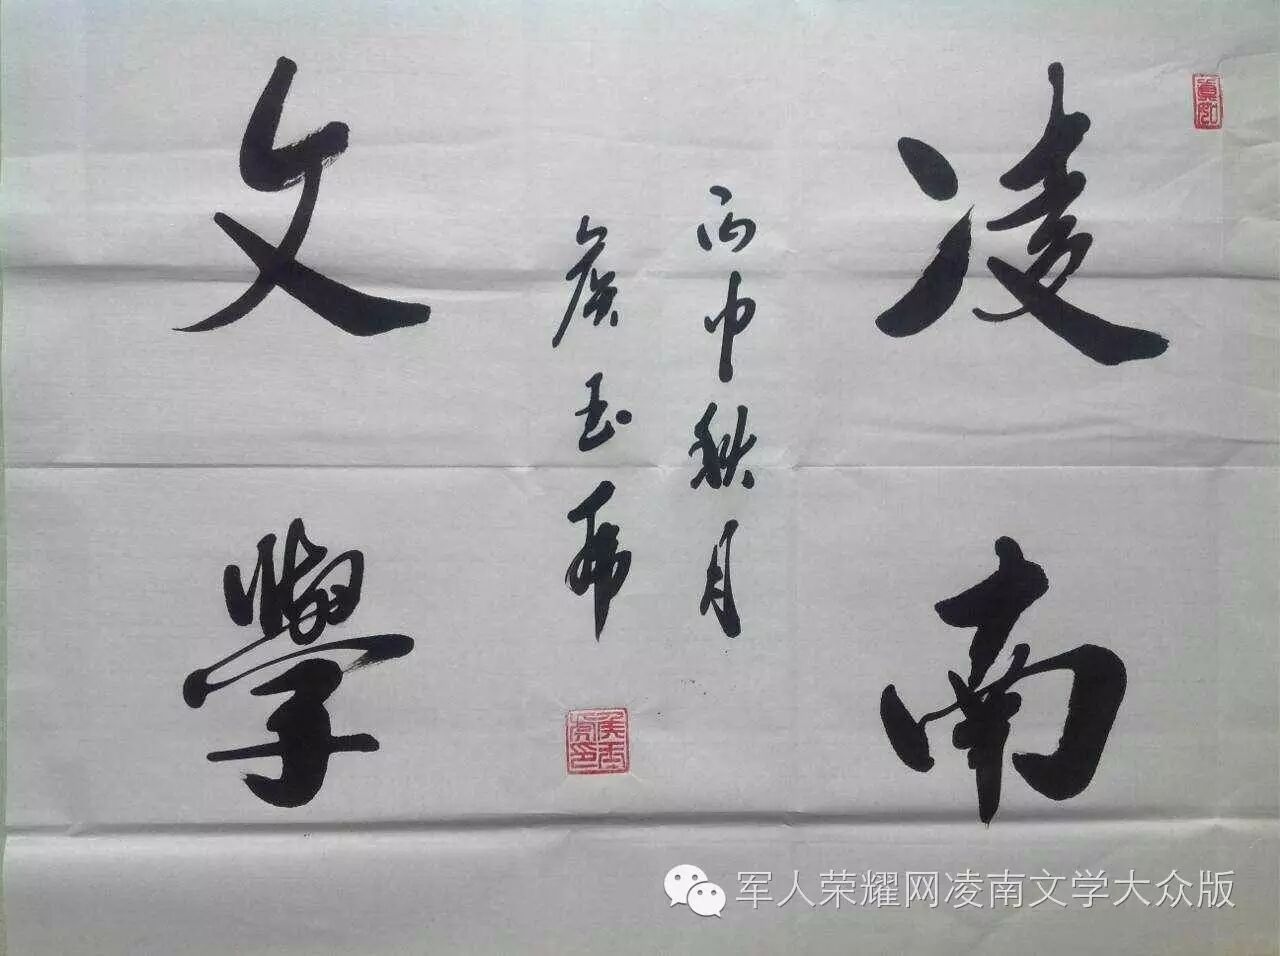 凌南
文學
丙申秋月
侯玉虎
侯玉虎印
军人荣耀网凌南文学大众版